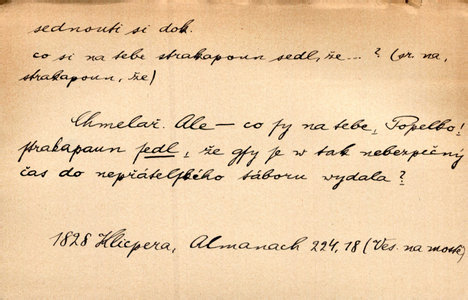 sednouti si dok.
co si na tebe strakapoun sedl, že ... ? (sr. na,
strakapoun, že)
Chmelař. Ale — co ſy na tebe, Popelko!
ſtrakapaun ſedl, že gſy ſe w tak nebezpečný
čas do nepřátelſkého táboru wydala?
1828 Klicpera, Almanach 224, 18 (Ves. na mostě)